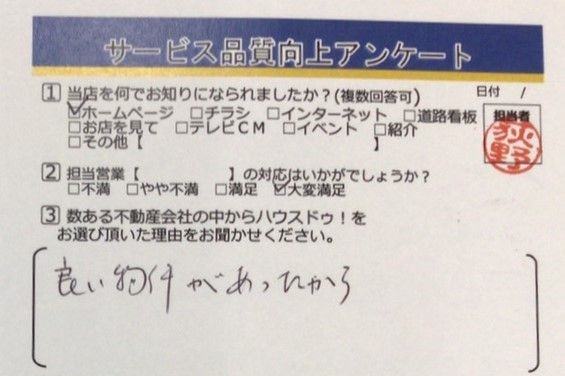 サービス品質向上アンケート
1 当店を何でお知りになられましたか？(複数回答可)
日付 /
☑ホームページ □チラシ □インターネット □道路看板
□お店を見て □テレビCM □イベント □紹介
□その他【 】
担当者
荻野
2 担当営業【 】の対応はいかがでしょうか？
□不満 □やや不満 □満足 ☑大変満足
3 数ある不動産会社の中からハウスドゥ！を
お選び頂いた理由をお聞かせください。
良い物件があったから